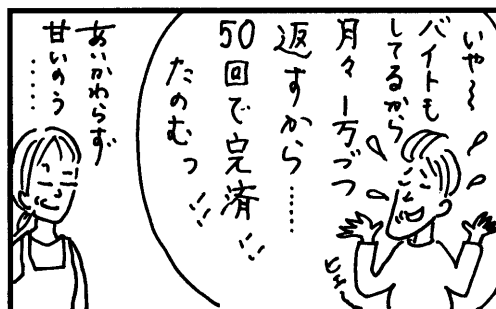 いや〜
バイトも
してるから
月々一万づつ
返すから……
50回で完済!!
たのむっ!!
ヒェ〜
あいかわらず
甘いのう
……